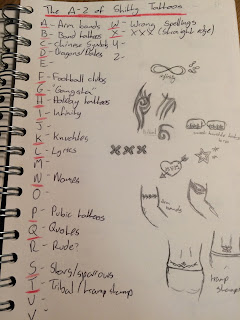 The A-Z of Shitty Tattoos
A- Arm bands
B- Band tattoos
C- Chinese Symbols
D-
E-
F- Football clubs
G- "Gangster"
H- Holiday tattoos
I- Infinity
J-
K- Knuckles
L- Lyrics
M-
N- Names
O-
P- Pubic tattoos
Q- Quotes
R- Rude?
S- Stars/sparrows
T- Tribal/tramp stamp
U-
V-
W- Wrong Spellings
X- XXX (straight edge)
Y-
Z-
XXX
MUM
arm bands
tramp stamp